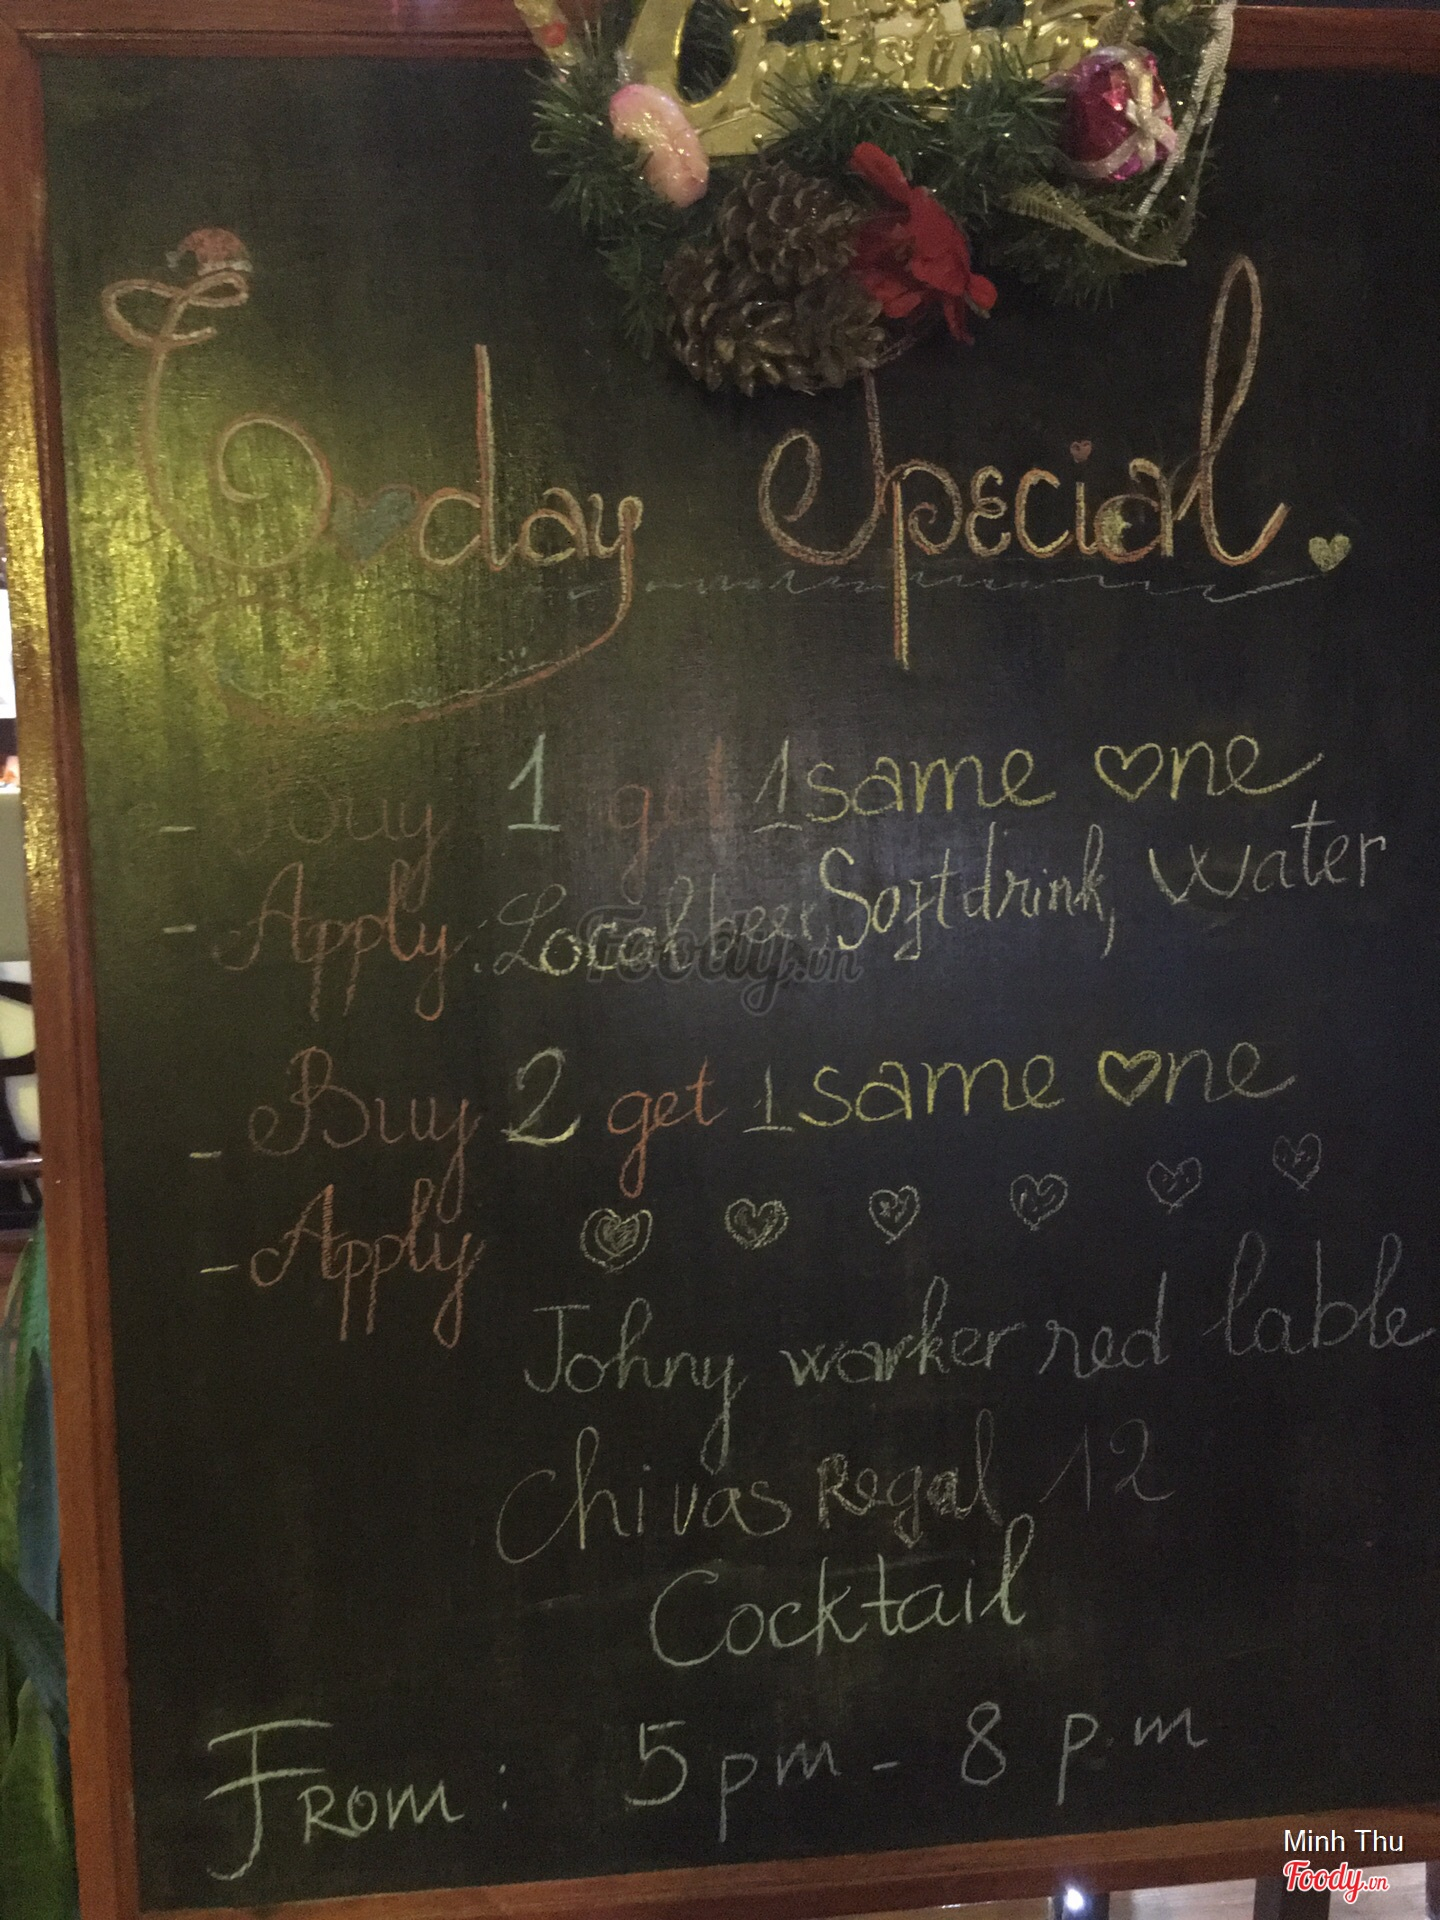 Christmas
Today Special
- Buy 1 get 1 same one
- Apply: Local beer Softdrink, Water
- Buy 2 get 1 same one
- Apply
Johny warker red lable
Chivas Regal 12
Cocktail
From: 5pm - 8 p.m
Foody.vn
Minh Thu
Foody.vn